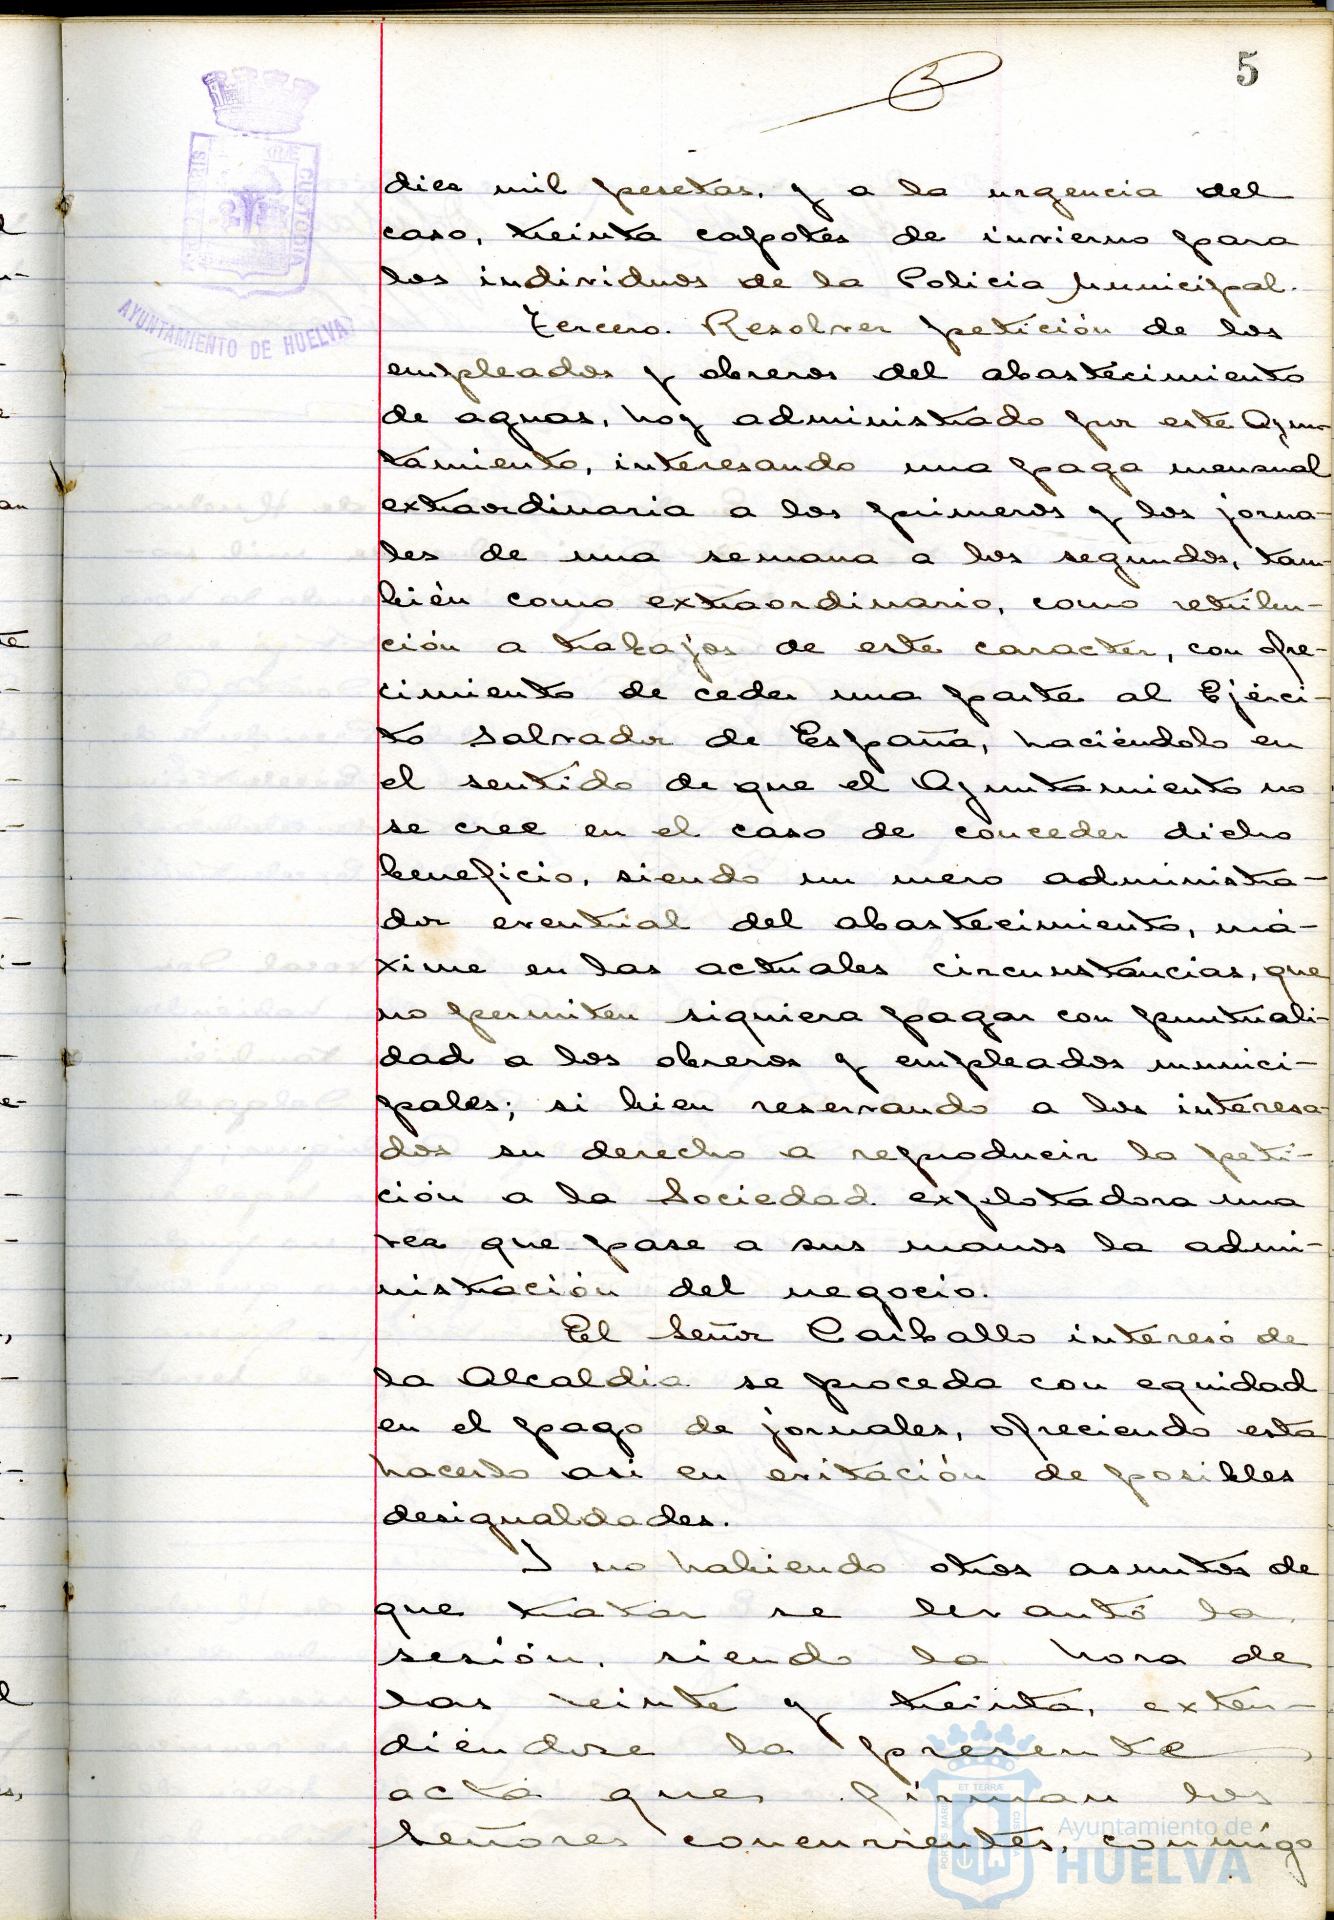 5
diez mil pesetas, y a la urgencia del
caso, treinta capotes de invierno para
los individuos de la Policia Municipal.
Tercero. Resolver petición de los
empleados y obreros del abastecimiento
de aguas, hoy administrado por este Ayun-
tamiento, interesando una paga mensual
extraordinaria a los primeros y los jorna-
les de una semana a los segundos, tam-
bién como extraordinario, como retribu-
ción a trabajos de este caracter, con ofre-
cimiento de ceder una parte al Ejérci-
to Salvador de España, haciéndolo en
el sentido de que el Ayuntamiento no
se cree en el caso de conceder dicho
beneficio, siendo un mero administra-
dor eventual del abastecimiento, má-
xime en las actuales circunstancias, que
no permiten siquiera pagar con puntuali-
dad a los obreros y empleados munici-
pales; si bien reservando a los interesa-
dos su derecho a reproducir la peti-
ción a la Sociedad explotadora una
vez que pase a sus manos la admi-
nistración del negocio.
El Señor Carballo interesó de
la Alcaldia se proceda con equidad
en el pago de jornales, ofreciendo esta
hacerlo asi en evitación de posibles
desigualdades.
Y no habiendo otros asuntos de
que tratar se levantó la
sesión, siendo la hora de
las veinte y treinta, exten-
diéndose la presente
acta que firman los
Señores concurrentes, conmigo
CUSTODIA
AYUNTAMIENTO DE HUELVA
PORTUS MARIS ET TERRÆ CUSTODIA
Ayuntamiento de
HUELVA